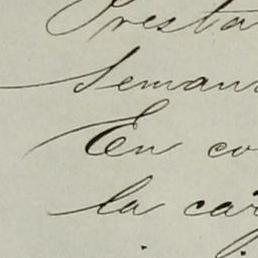 Presta
Seman
En co
la car